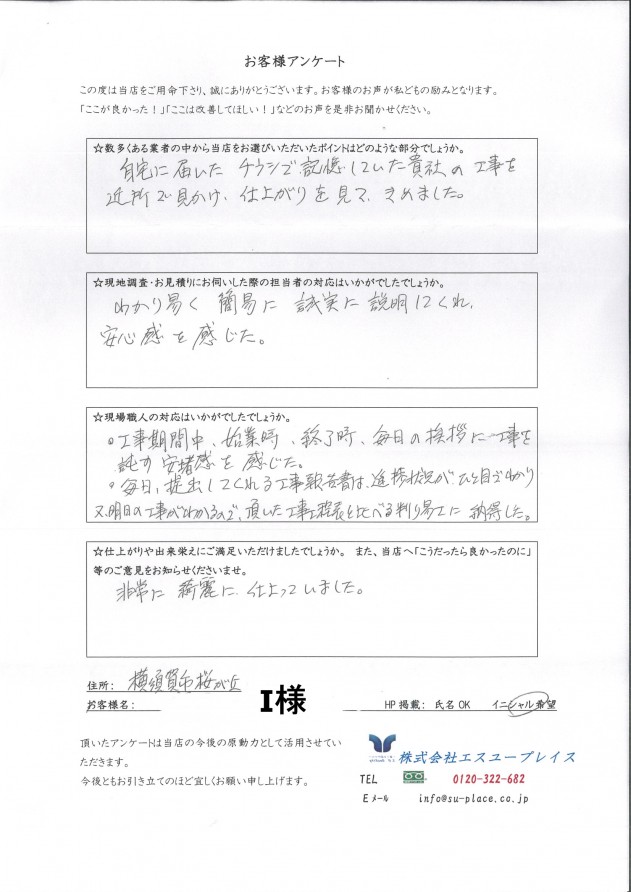 お客様アンケート
この度は当店をご用命下さり、誠にありがとうございます。お客様のお声が私どもの励みとなります。
「ここが良かった！」「ここは改善してほしい！」などのお声を是非お聞かせください。
☆数多くある業者の中から当店をお選びいただいたポイントはどのような部分でしょうか。
自宅に届いた チラシで記憶していた貴社の工事を
近所で見かけ、仕上がりを見て、きめました。
☆現地調査・お見積りにお伺いした際の担当者の対応はいかがでしたでしょうか。
わかり易く 簡易に 誠実に 説明してくれ、
安心感を感じた。
☆現場職人の対応はいかがでしたでしょうか。
・工事期間中、始業時、終了時、毎日の挨拶に工事を
託す安堵感を感じた。
・毎日、提出してくれる工事報告書は、進捗状況がひと目でわかり
又、明日の工事がわかるので、頂いた工事工程表と比べる判り易さに納得した。
☆仕上がりや出来栄えにご満足いただけましたでしょうか。 また、当店へ「こうだったら良かったのに」
等のご意見をお知らせくださいませ。
非常に 綺麗に 仕上っていました。
住所： 横須賀市桜が丘
お客様名： I様 HP掲載： 氏名OK イニシャル希望
頂いたアンケートは当店の今後の原動力として活用させてい
ただきます。
今後ともお引き立てのほど宜しくお願い申し上げます。
株式会社エスユープレイス
TEL 0120-322-682
Eメール info@su-place.co.jp